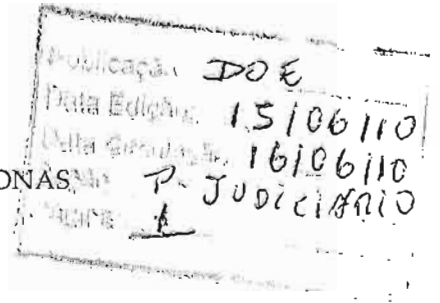 Publicação DOE
Data Edição 15/06/10
Data Circulação 16/06/10
ONAS P. JUDICIÁRIO
1